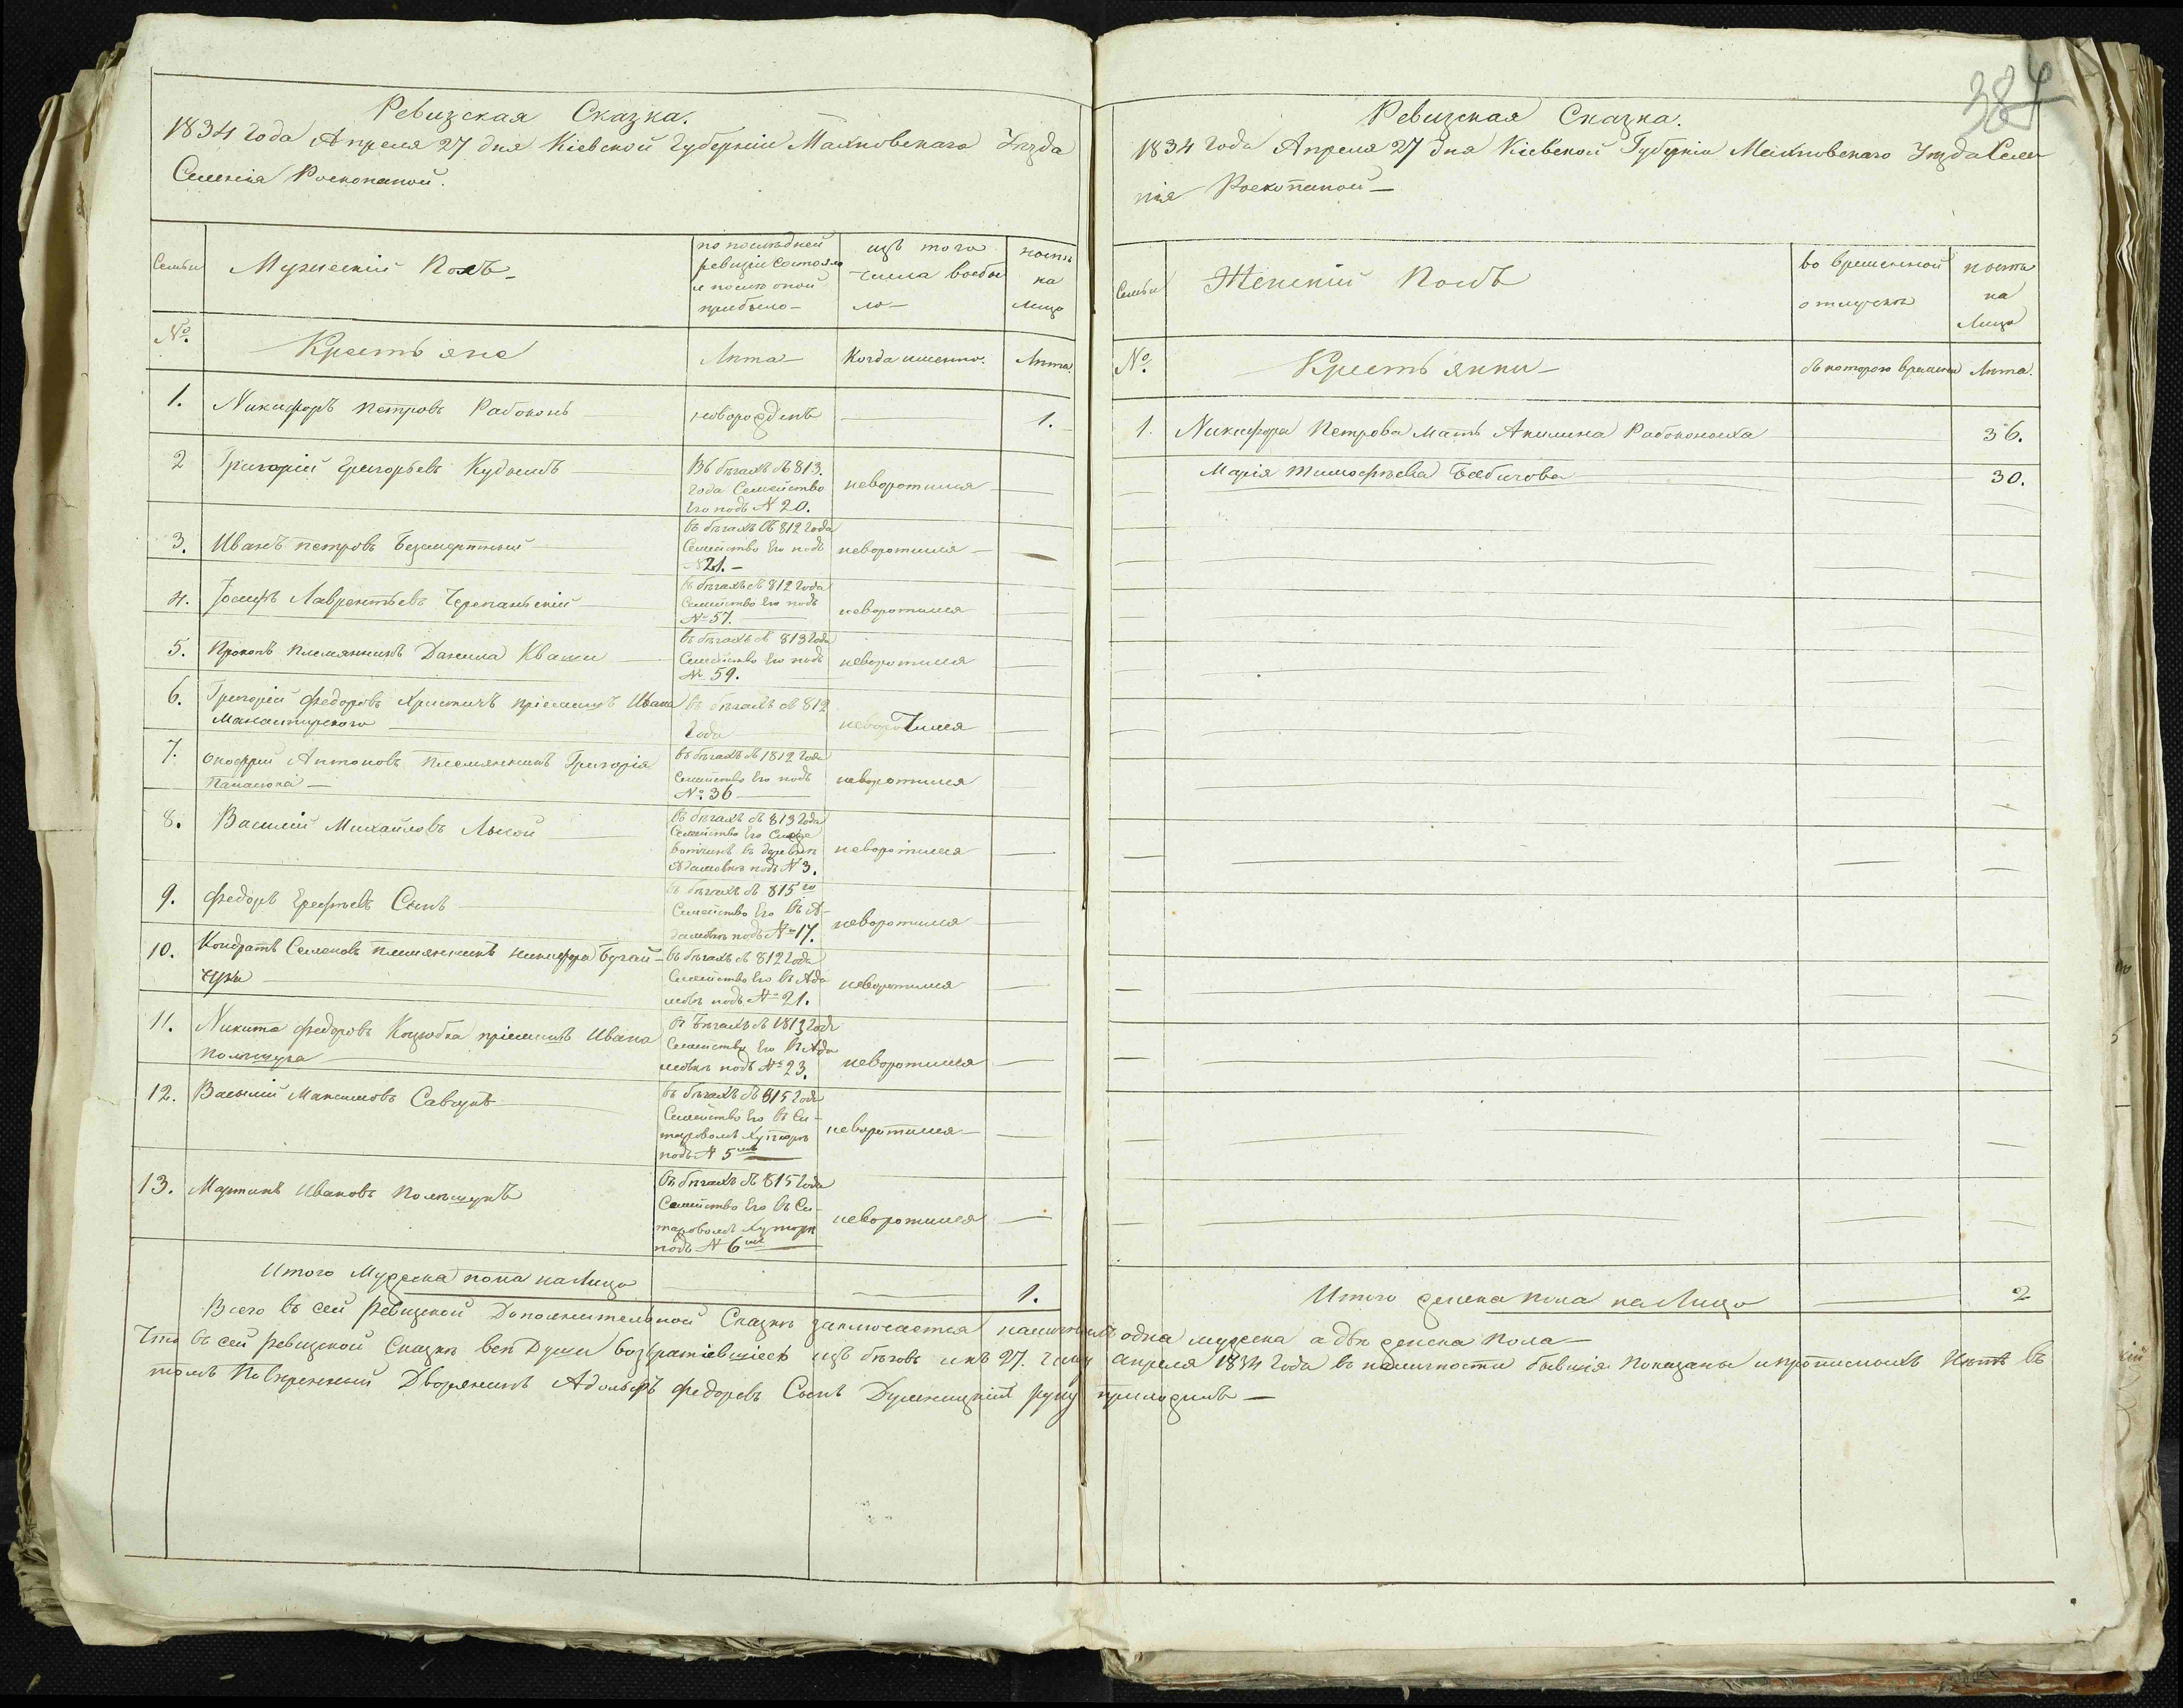 384
Ревизская Сказка.
1834 года Апреля 27 дня Кіевской Губерніи Махновскаго Уѣзда
Селенія Роскопаной.
Семьи
Мужескій Полъ
по послѣдней ревизіи состояло и послѣ оной прибыло
изъ того числа выбыло
нынѣ на лицо
№
Крестьяне
Лѣта
Когда именно.
Лѣта.
1. Никифоръ Петровъ Рабоконь новорожденъ 1.
2 Григорій Григорьевъ
Въ бѣгахъ съ 813. года Семейство Его подъ N 20. неворотился
3. Иванъ Петровъ Безмертный
въ бѣгахъ съ 812 года Семейство Его подъ N 21. неворотился
4. Іосифъ Лаврентьевъ Черепаньскій
въ бѣгахъ съ 812 года Семейство Его подъ № 57. неворотился
5. Прокопъ племянникъ Данила Кваши
въ бѣгахъ съ 813 года Семейство Его подъ № 59. неворотился
6. Григорій Федоровъ пріемышъ Ивана
Манастирского
въ бѣгахъ съ 812 года неворотился
7. Онофрій Антоновъ племянникъ Григорія
Панасюка
въ бѣгахъ съ 1812 года Семейство Его подъ №: 36 неворотился
8. Василій Михайловъ Лысой
въ бѣгахъ съ 813 года Семейство Его вотчинѣ въ деревнѣ Адамовкѣ подъ N 3. неворотился
9. Федоръ Ерофѣевъ Сынъ
въ бѣгахъ съ 815 го Семейство Его въ Адамовкѣ подъ № 17. неворотился
10. Кондратъ Семеновъ племянникъ Никифора
въ бѣгахъ съ 812 года Семейство Его въ Адамовкѣ подъ № 21. неворотился
11. Никита Федоровъ Коцюбка пріемышъ Ивана
Полищука
въ бѣгахъ съ 1813 года Семейство Его въ Адамовкѣ подъ № 23. неворотился
12. Василій Максимовъ Савчукъ
въ бѣгахъ съ 815 года Семейство Его въ хуторѣ подъ N 5 неворотился
13. Мартинъ Ивановъ Полищукъ
въ бѣгахъ съ 815 года Семейство Его въ хуторѣ подъ N 6 неворотился
Итого Мужеска пола налицо 1.
Ревизская Сказка.
1834 года Апреля 27 дня Кіевской Губерніи Махновскаго Уѣзда Селе-
нія Роскопаной
Семьи
Женскій Полъ
во временной отлучкѣ
нынѣ на лицо
№
Крестьянки
съ котораго времени
Лѣта.
1. Никифора Петрова мать Акилина Рабокониха 36.
Марія Тимофѣева Бабичова 30.
Итого женска пола налицо 2
Всего въ сей Ревизской Дополнительной Сказкѣ заключается наличныхъ одна мужеска а двѣ женска пола
Что въ сей ревизской Сказкѣ всѣ Души возвратившіесь изъ бѣговъ и къ 27. числу апреля 1834 года въ наличности бывшія показаны и прописныхъ нѣтъ въ
томъ Повѣренный Дворянинъ Адольфъ Федоровъ Сынъ руку приложилъ